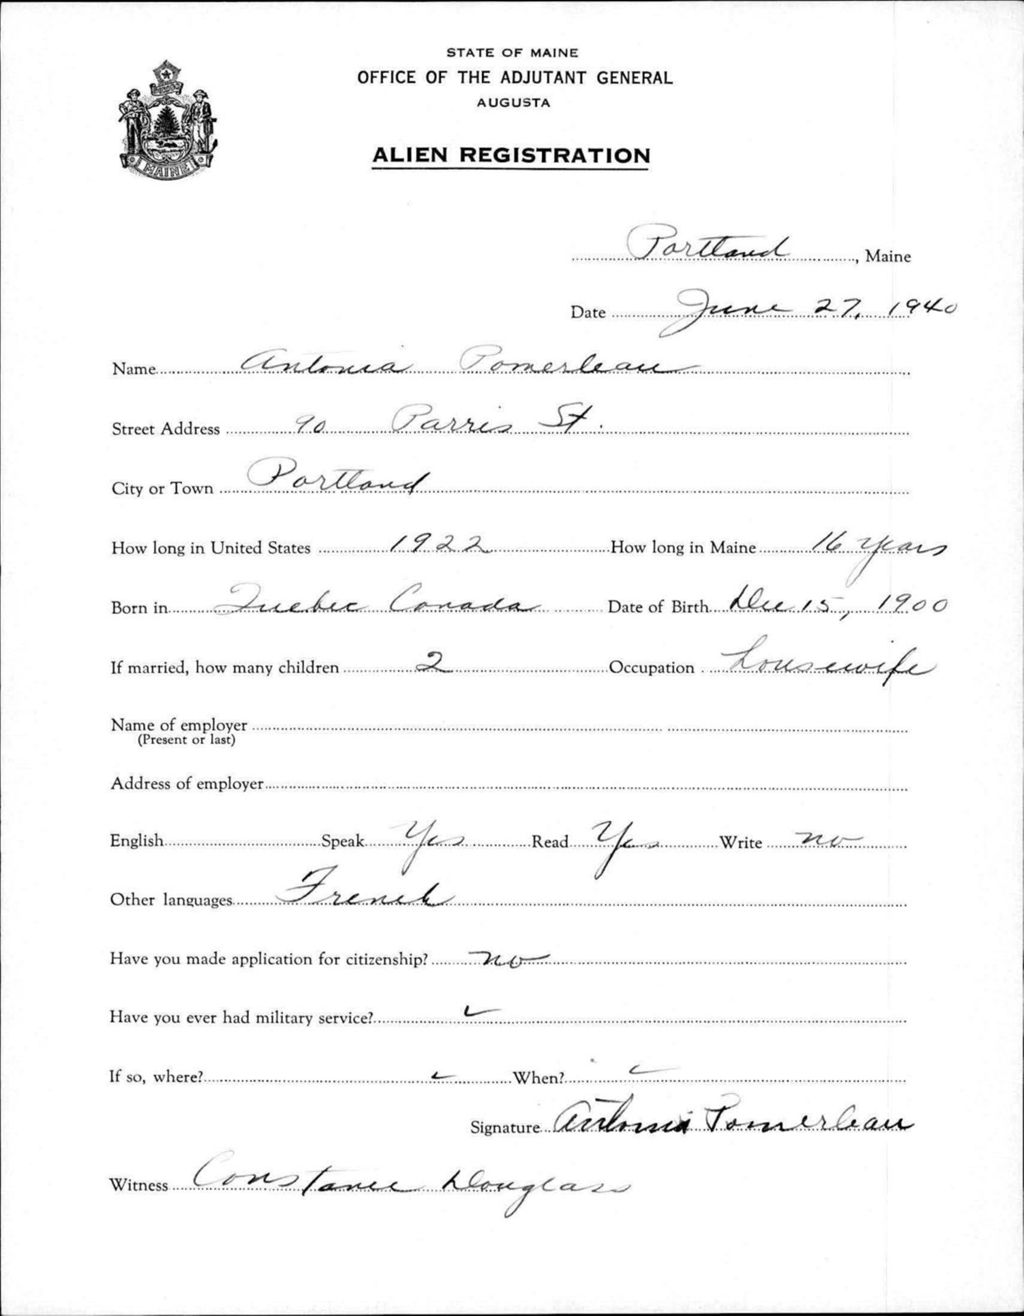 STATE OF MAINE
OFFICE OF THE ADJUTANT GENERAL
AUGUSTA
ALIEN REGISTRATION
MAINE
Portland, Maine
Date June 27, 1940
Name Antonia Pomerleau
Street Address 90 Parris St.
City or Town Portland
How long in United States 1922 How long in Maine 16 Years
Born in Quebec Canada Date of Birth Dec 15, 1900
If married, how many children 2 Occupation housewife
Name of employer
(Present or last)
Address of employer
English Speak Yes Read Yes Write no
Other languages French
Have you made application for citizenship? no
Have you ever had military service? ✓
If so, where? ✓ When? ✓
Signature Antonia Pomerleau
Witness Constance Douglass